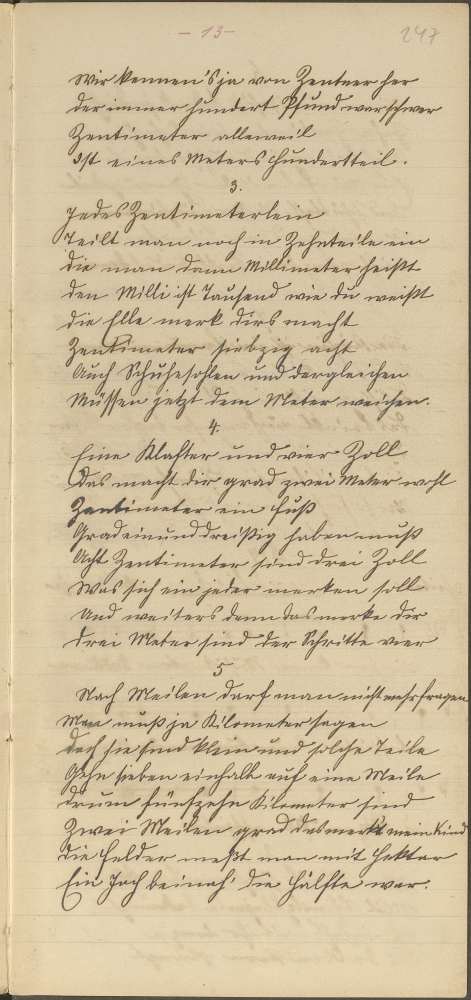 - 13 -
247
Wir kennen's ja von Zentner her
der immer hundert Pfund war schwer
Zentimeter alleweil
Ist eines Meters Hundertteil.
3.
Jedes Zentimeterlein
Teilt man noch in Zehnteile ein
die man dann Millimeter heißt
den Milli ist Tausend wie du weißt
die Elle merk dirs macht
Zentimeter siebzig acht
Auch Schuhesohlen und dergleichen
Müssen jetzt dem Meter weichen.
4.
Eine Klafter und vier Zoll
Das macht dir grad zwei Meter wohl
Zentimeter ein Fuß
Grad einunddreißig haben muß
Acht Zentimeter sind drei Zoll
Was sich ein jeder merken soll
Und weiters dann das merke dir
drei Meter sind der Schritte vier
5
Nach Meilen darf man nicht mehr fragen
Man muß ja Kilometer sagen
doch sie sind klein und solche Teile
Gehn sieben einhalb auf eine Meile
drum fünfzehn Kilometer sind
Zwei Meilen grad das merkt mein Kind
die Felder meßt man mit Hektar
Ein Joch beinah' die Hälfte war.